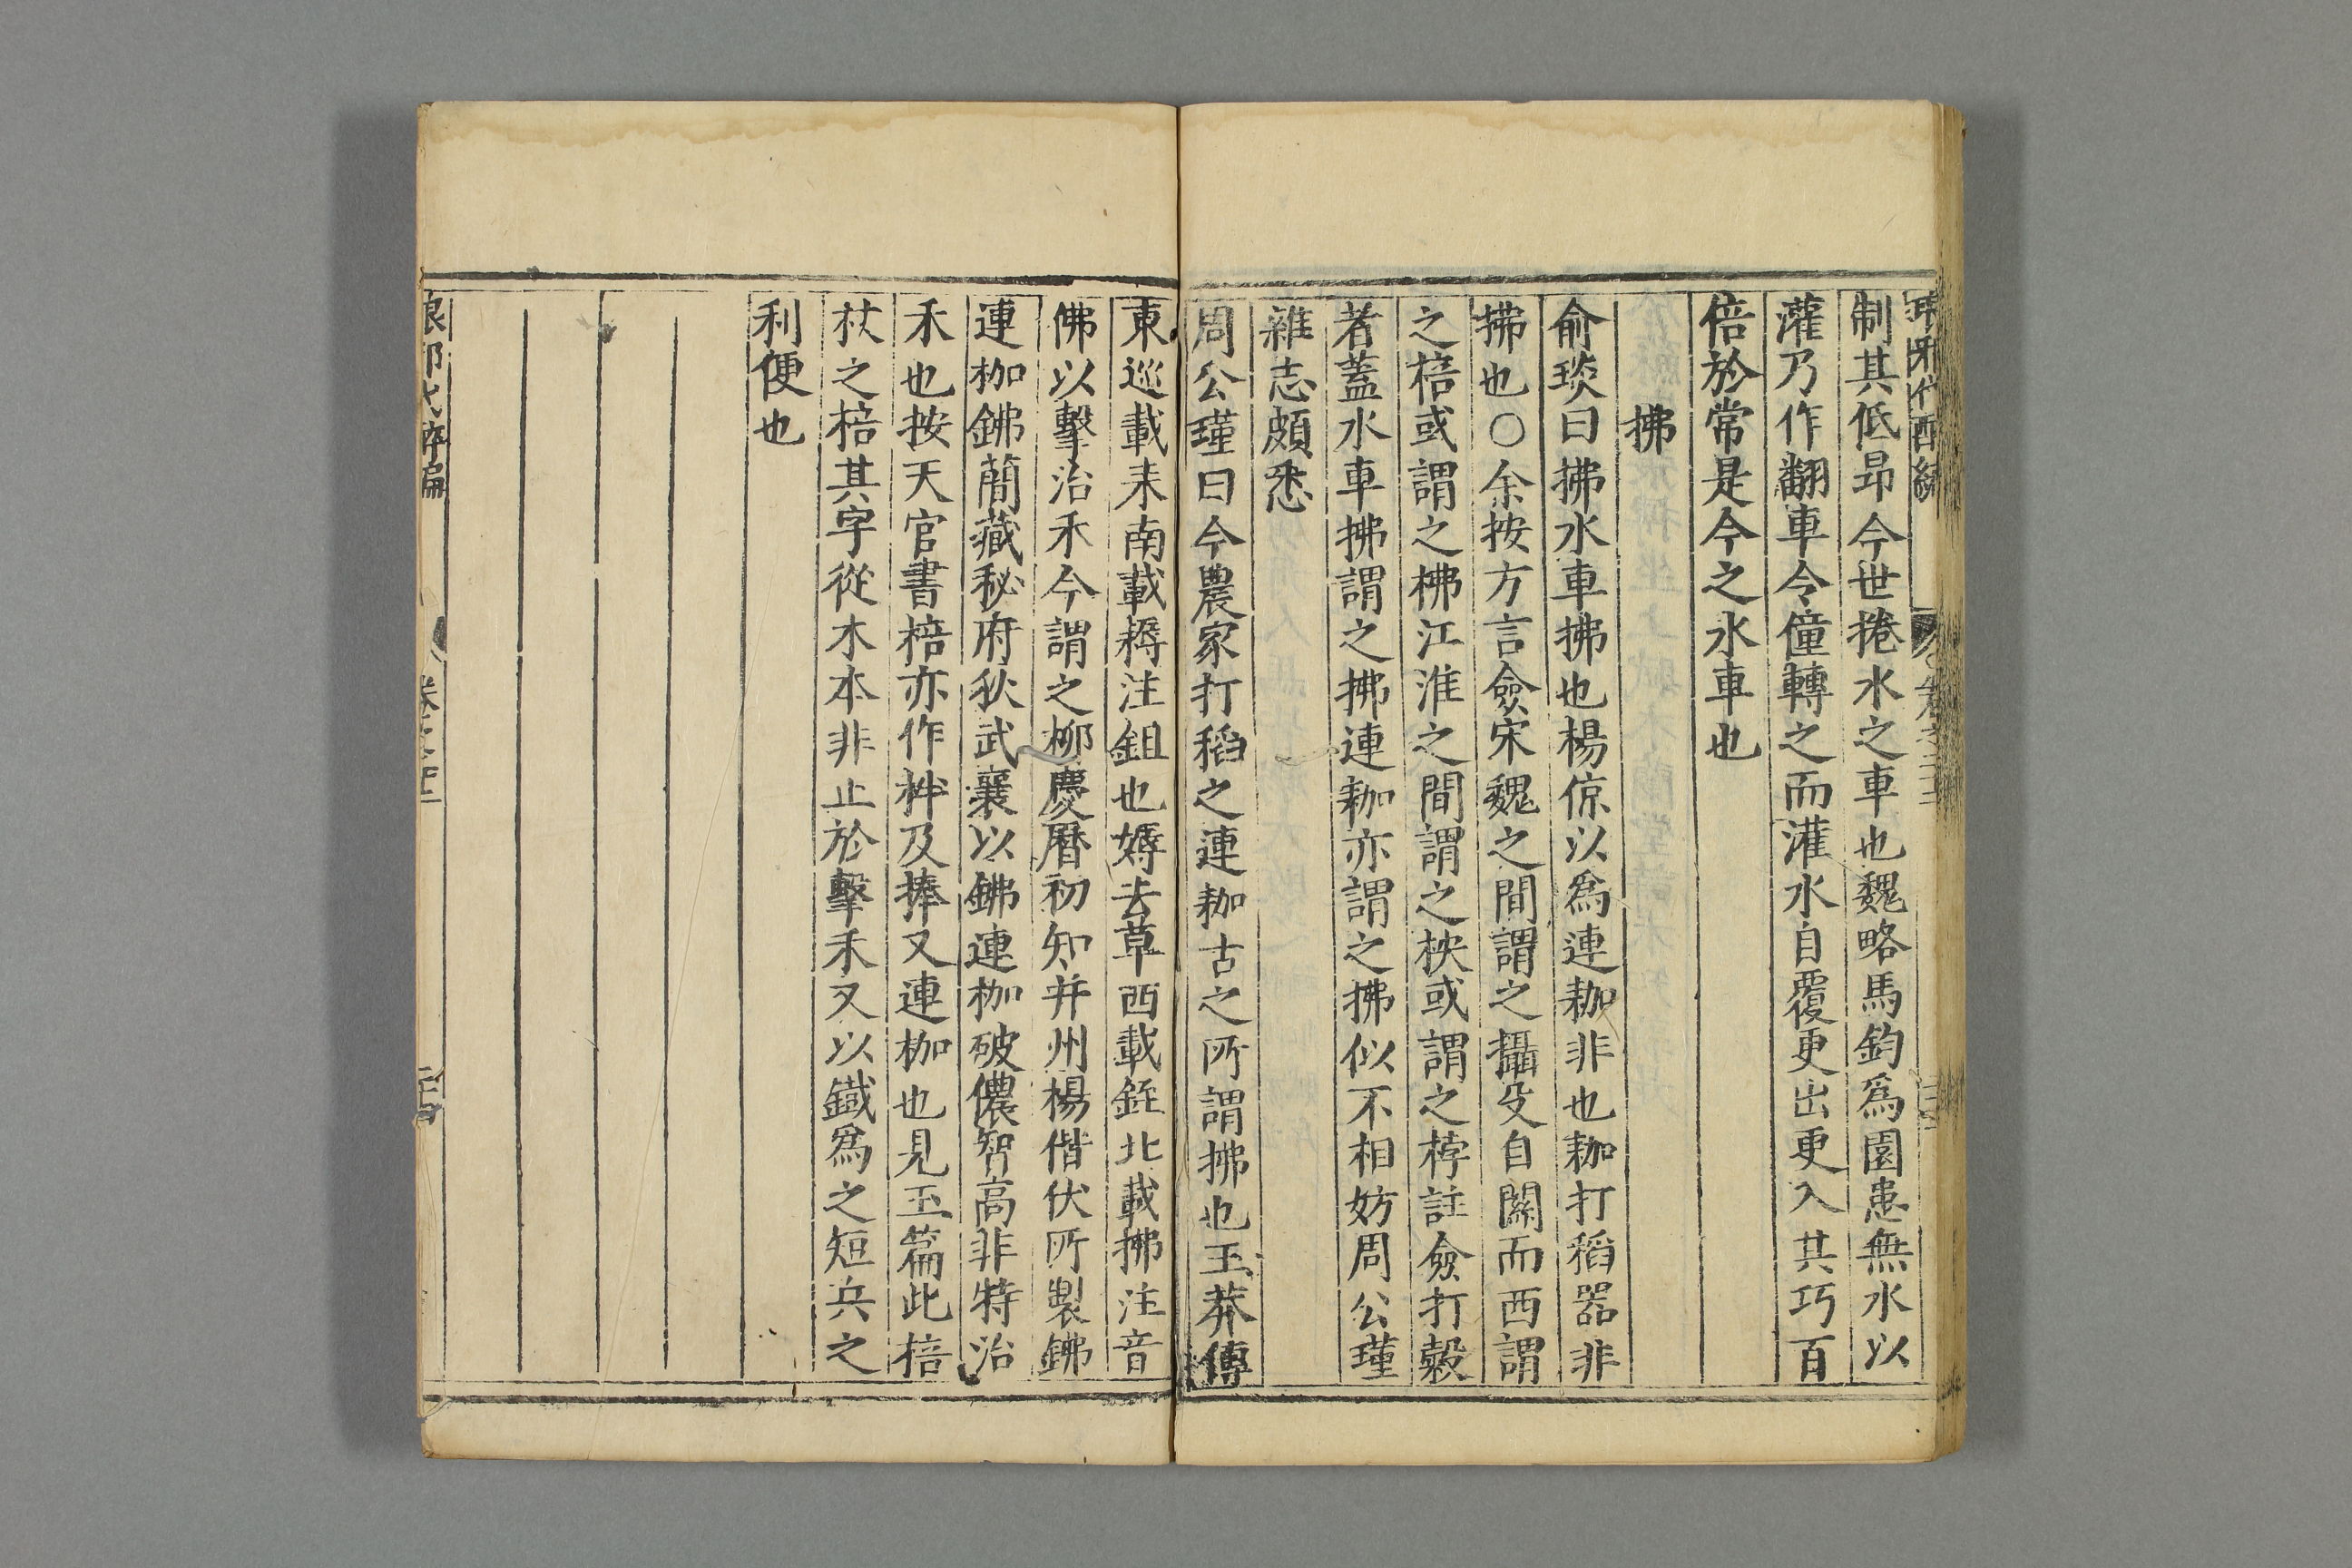 制其低昂今世捲水之車也魏略馬鈞爲園患無水以
灌乃作翻車令僮轉之而灌水自覆更出更入其巧百
倍於常是今之水車也
拂
俞琰曰拂水車拂也楊倞以爲連耞非也耞打稻器非
拂也○余按方言僉宋魏之間謂之攝殳自關而西謂
之棓或謂之柫江淮之間謂之柍或謂之桲註僉打穀
者蓋水車拂謂之拂連耞亦謂之拂似不相妨周公瑾
雜志頗悉
周公瑾曰今農家打稻之連耞古之所謂拂也王莽傳
東巡載耒南載耨注鉏也媷去草西載銍北載拂注音
佛以擊治禾今謂之枷慶曆初知并州楊偕伏所製鉘
連枷鉘簡藏秘府狄武襄以鉘連枷破儂智高非特治
禾也按天官書棓亦作柈及捧又連枷也見玉篇此棓
杖之棓其字從木本非止於擊禾又以鐵爲之短兵之
利便也